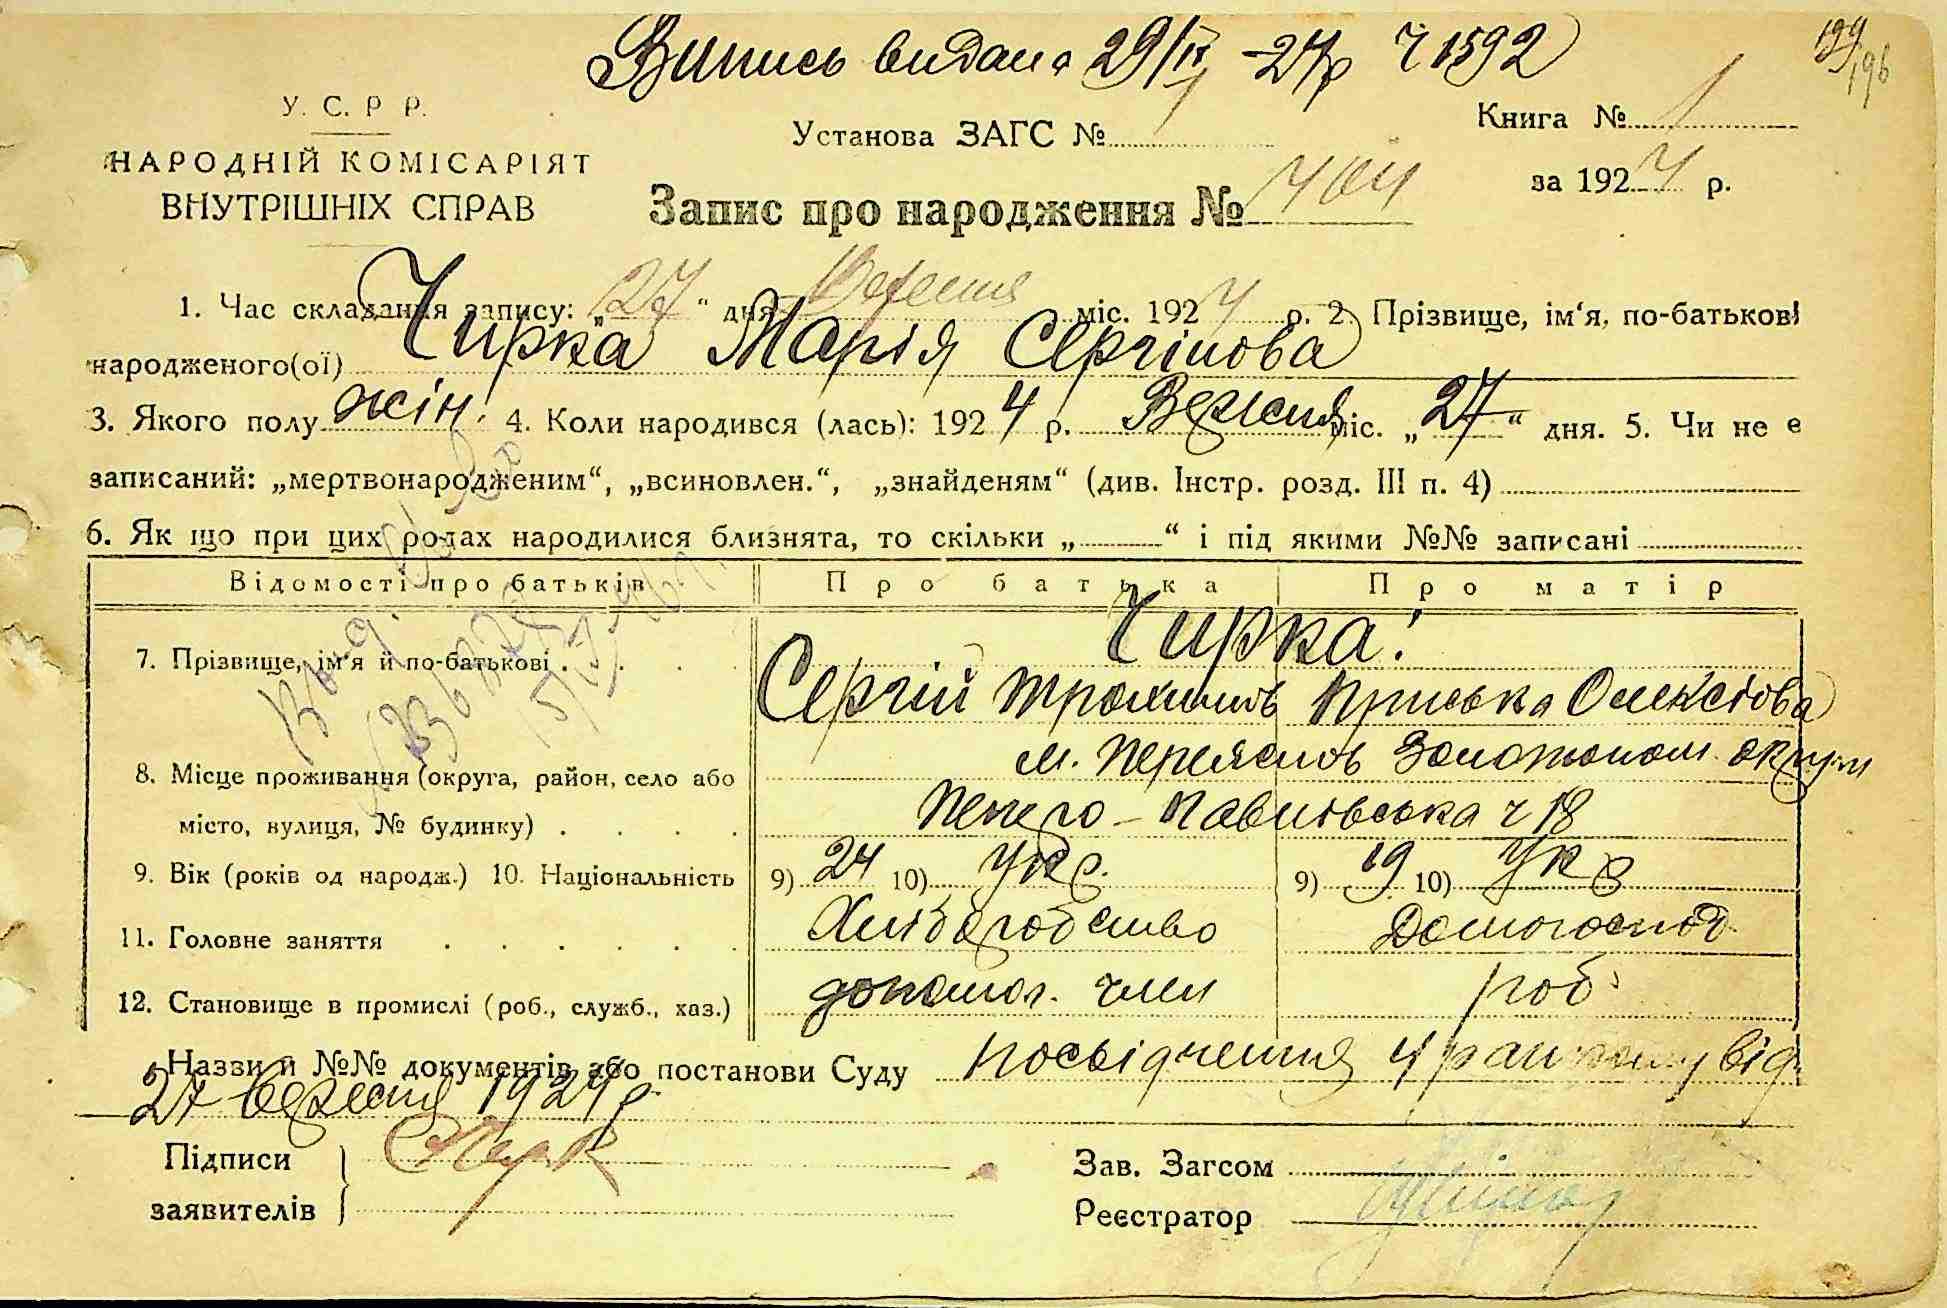 Випись видана 29/IV -27р Ч 1592
199
196
У. С. Р Р.
НАРОДНІЙ КОМІСАРІЯТ
ВНУТРІШНІХ СПРАВ
Установа ЗАГС №
Книга № 1
за 1924 р.
Запис про народження №
1. Час складання запису: „27“ дня Вересня міс. 1924 р. 2. Прізвище, ім‘я, по-батькові
народженого(ої) Чирка Марія Сергіїова
3. Якого полу жін. 4. Коли народився (лась): 1924 р. Вересня міс. „27“ дня. 5. Чи не є
записаний: „мертвонародженим“, „всиновлен.“, „знайденям“ (див. Інстр. розд. III п. 4)
6. Як що при цих родах народилися близнята, то скільки „ “ і під якими №№ записані
Відомості про батьків Про батька Про матір
Чирка:
7. Прізвище, ім‘я й по-батькові Сергій Трохимов Приська Олексіова
8. Місце проживання (округа, район, село або м. Переяслов Золотонош. округи
місто, вулиця, № будинку) Петро-Павлівська ч 18
9. Вік (років од народж.) 10. Національність 9) 24 10) Укр. 9) 19 10) Укр
11. Головне заняття Хліборобство Домогоспод.
12. Становище в промислі (роб., служб., хаз.) допомог. член роб.
Назви й №№ документів або постанови Суду посвідчення від
27 вересня 1924 р.
Підписи
заявителів
Зав. Загсом
Реєстратор